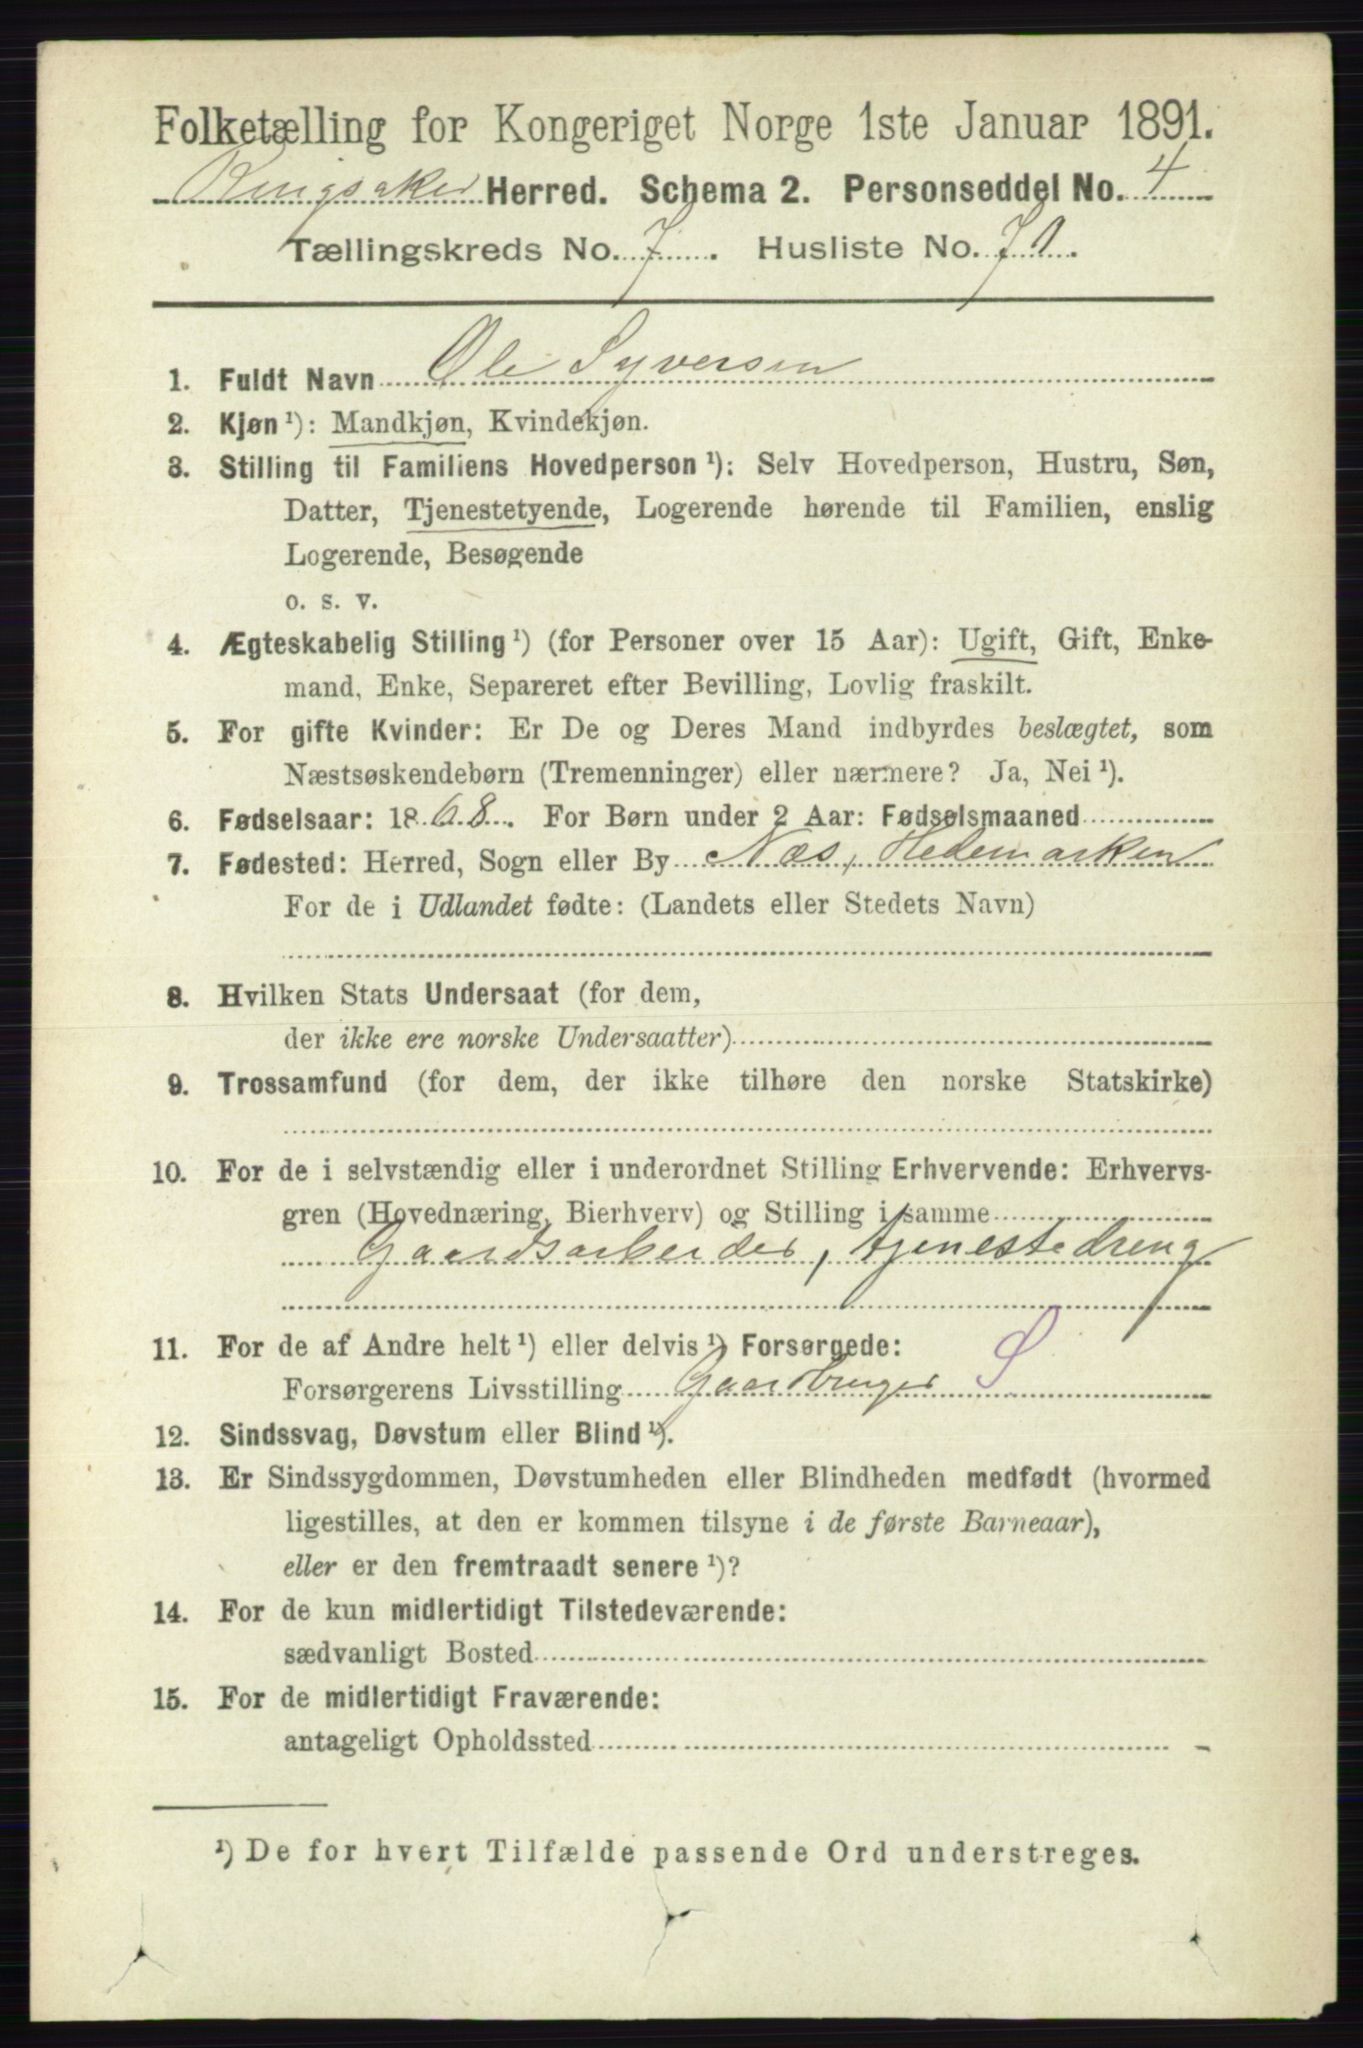 Folketælling for Kongeriget Norge 1ste Januar 1891.
Ringsaker Herred. Schema 2. Personseddel No. 4
Tællingskreds No. 7. Husliste No. 70.
1. Fuldt Navn Ole Syversen
2. Kjøn ¹): Mandkjøn, Kvindekjøn.
3. Stilling til Familiens Hovedperson ¹): Selv Hovedperson, Hustru, Søn,
Datter, Tjenestetyende, Logerende hørende til Familien, enslig
Logerende, Besøgende
o. s. v.
4. Ægteskabelig Stilling ¹) (for Personer over 15 Aar): Ugift, Gift, Enke-
mand, Enke, Separeret efter Bevilling, Lovlig fraskilt.
5. For gifte Kvinder: Er De og Deres Mand indbyrdes beslægtet, som
Næstsøskendebørn (Tremenninger) eller nærmere? Ja, Nei ¹).
6. Fødselsaar: 1868. For Børn under 2 Aar: Fødselsmaaned
7. Fødested: Herred, Sogn eller By Næs, Hedemarken
For de i Udlandet fødte: (Landets eller Stedets Navn)
8. Hvilken Stats Undersaat (for dem,
der ikke ere norske Undersaatter)
9. Trossamfund (for dem, der ikke tilhøre den norske Statskirke)
10. For de i selvstændig eller i underordnet Stilling Erhvervende: Erhvervs-
gren (Hovednæring, Bierhverv) og Stilling i samme
Gaardsarbeider, tjenestedreng
11. For de af Andre helt ¹) eller delvis ¹) Forsørgede:
Forsørgerens Livsstilling Gaardbruger S
12. Sindssvag, Døvstum eller Blind ¹).
13. Er Sindssygdommen, Døvstumheden eller Blindheden medfødt (hvormed
ligestilles, at den er kommen tilsyne i de første Barneaar),
eller er den fremtraadt senere ¹)?
14. For de kun midlertidigt Tilstedeværende:
sædvanligt Bosted
15. For de midlertidigt Fraværende:
antageligt Opholdssted
¹) De for hvert Tilfælde passende Ord understreges.